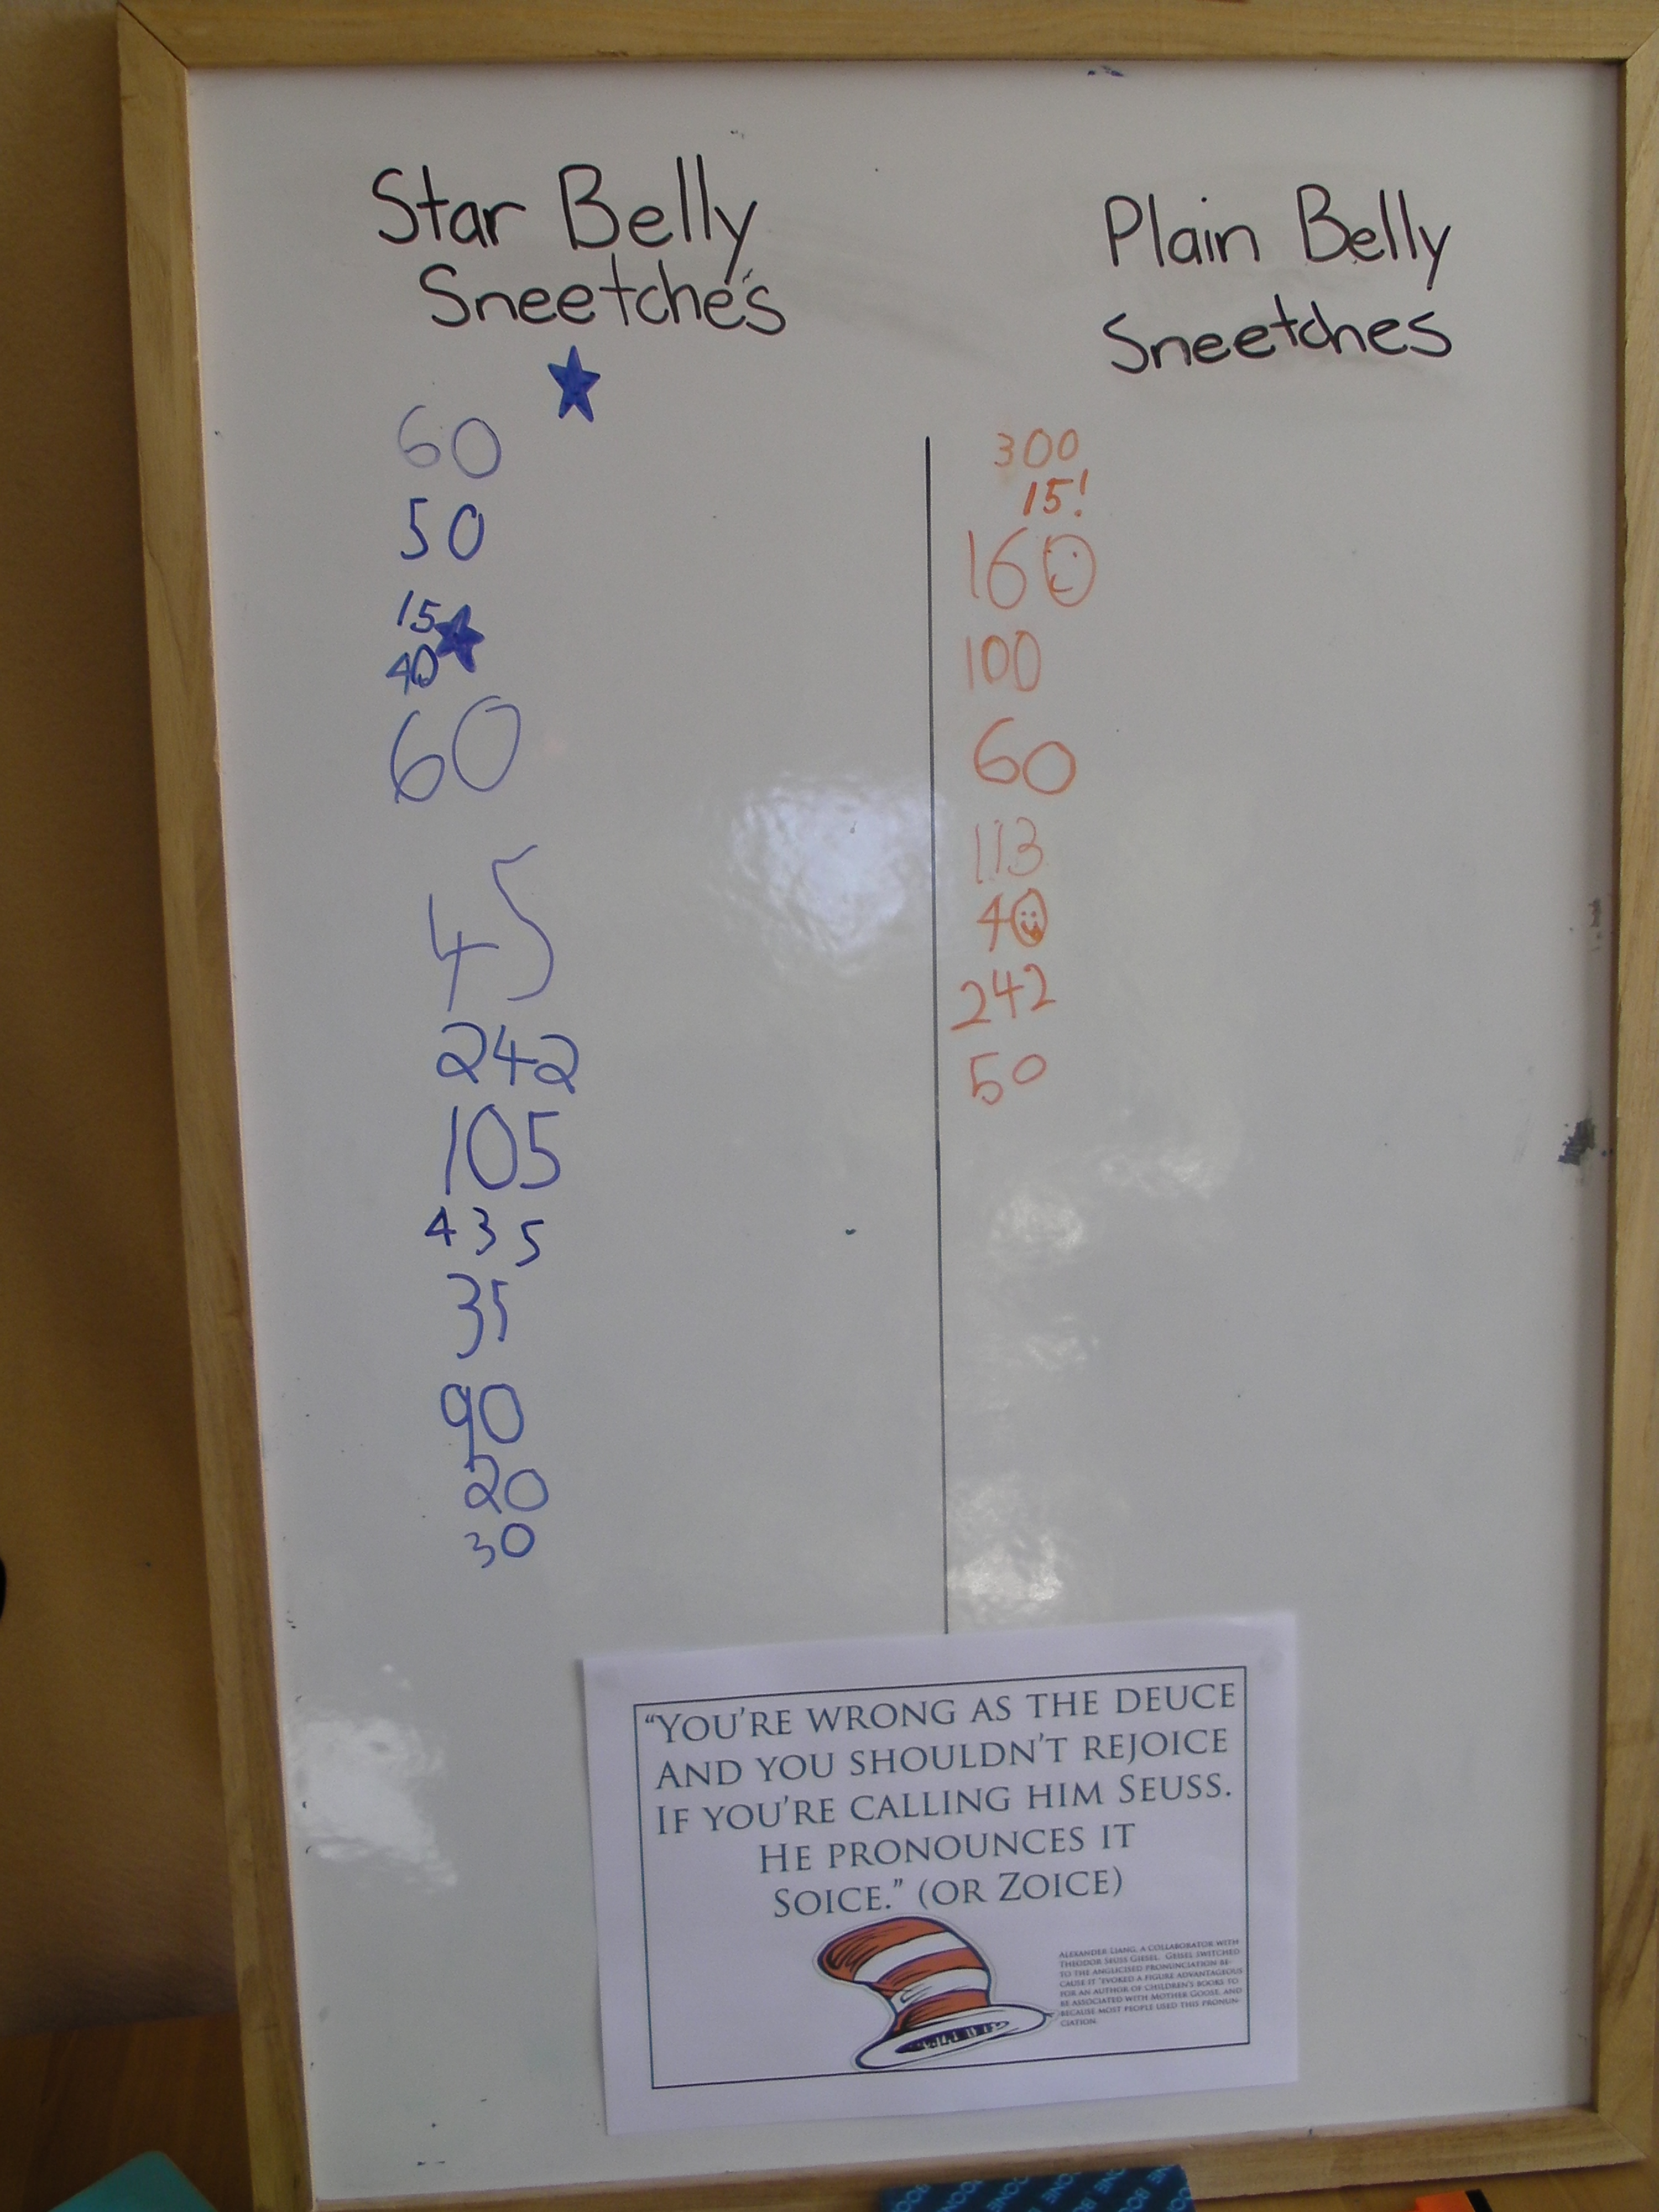 Star Belly
Sneetches
60
50
15
40
60
45
242
105
435
35
90
20
30
Plain Belly
Sneetches
300
15!
160
100
60
113
40
242
50
"YOU'RE WRONG AS THE DEUCE
AND YOU SHOULDN'T REJOICE
IF YOU'RE CALLING HIM SEUSS.
HE PRONOUNCES IT
SOICE." (OR ZOICE)
ALEXANDER LIANG, A COLLABORATOR WITH
THEODOR SEUSS GIESEL. GEISEL SWITCHED
TO THE ANGLICISED PRONUNCIATION BE-
CAUSE IT "EVOKED A FIGURE ADVANTAGEOUS
FOR AN AUTHOR OF CHILDREN'S BOOKS TO
BE ASSOCIATED WITH MOTHER GOOSE, AND
BECAUSE MOST PEOPLE USED THIS PRONUN-
CIATION.